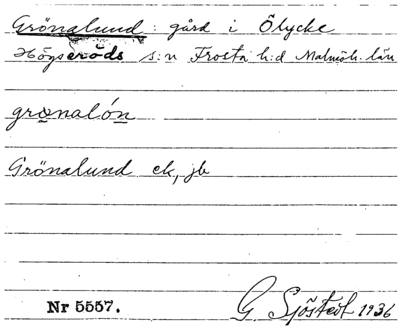 Grönalund: gård i Ölycke
Högseröds s:n Frosta h:d Malmöh. län
grønalón
Grönalund ek, jb
Nr 5557.
G Sjöstedt 1936